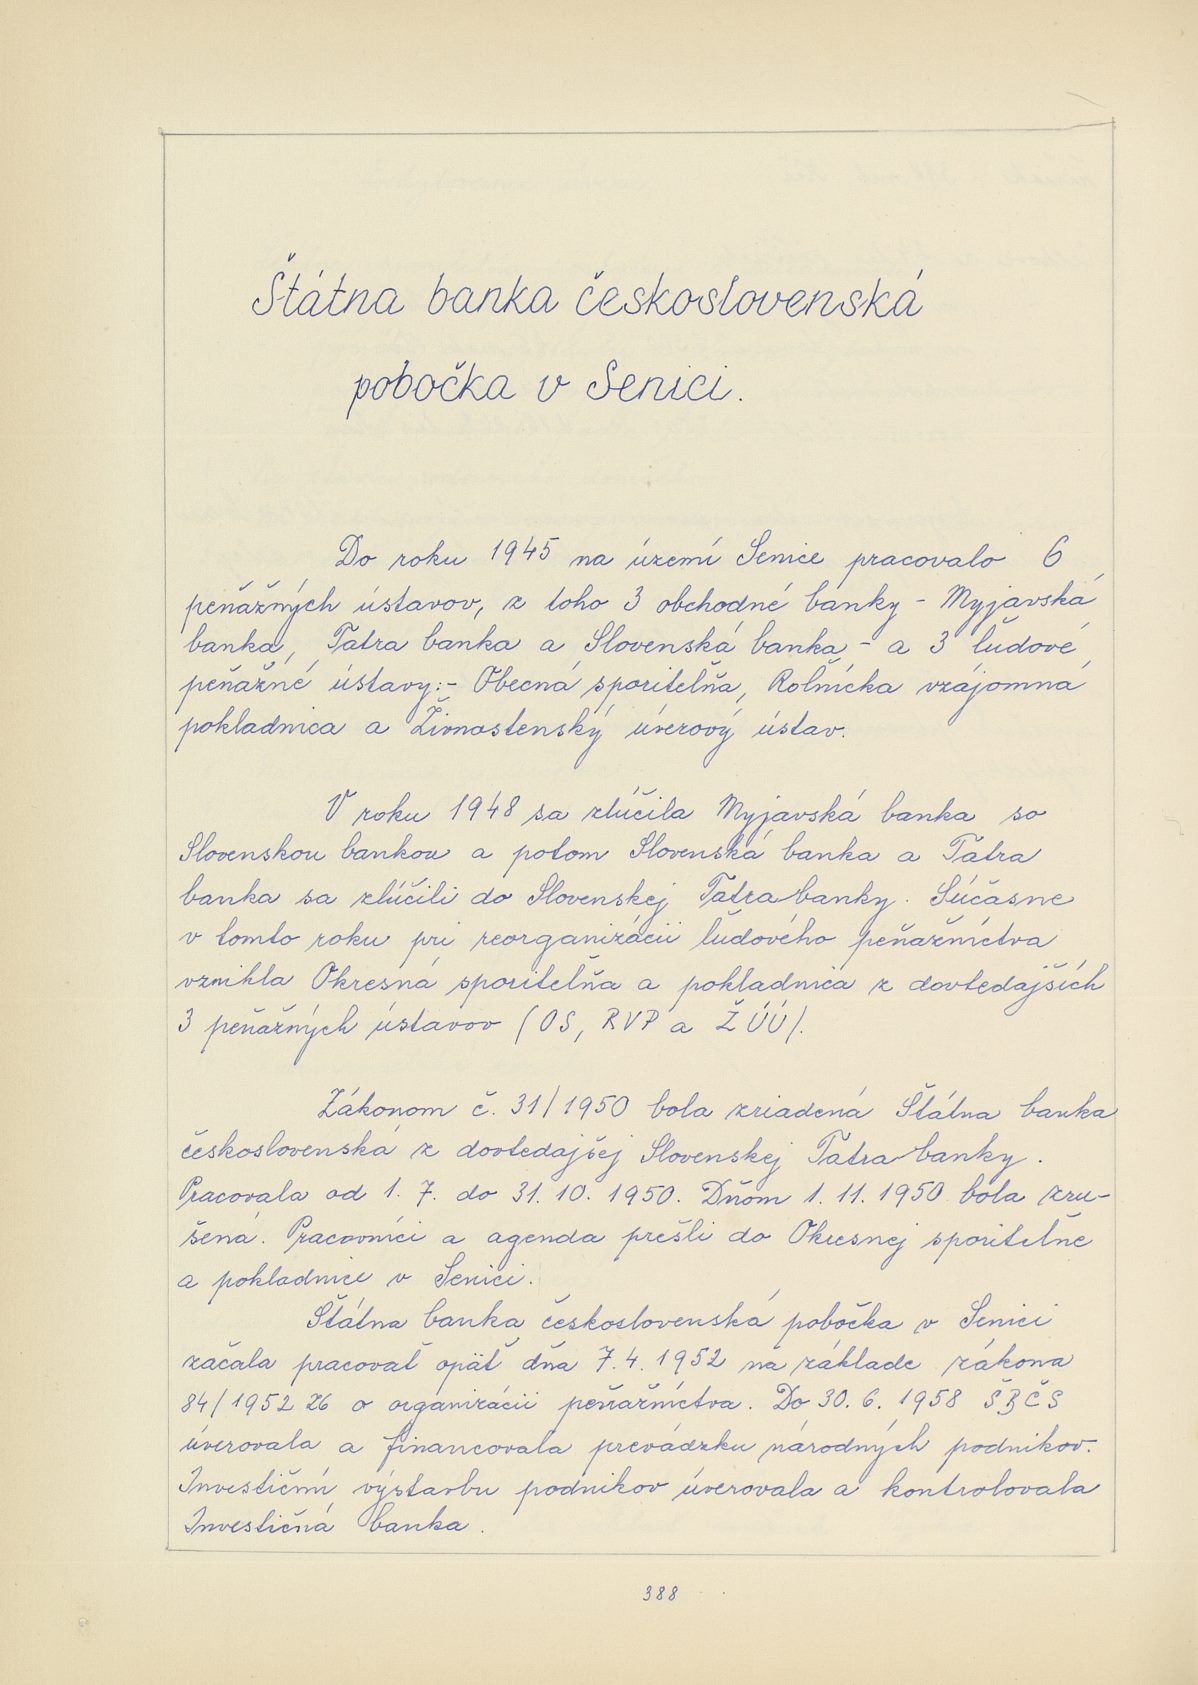 Štátna banka československá
pobočka v Senici.
Do roku 1945 na území Senice pracovalo 6
peňažných ústavov, z toho 3 obchodné banky - Myjavská
banka, Tatra banka a Slovenská banka - a 3 ľudové
peňažné ústavy:- Obecná sporiteľňa, Roľnícka vzájomná
pokladnica a Živnostenský úverový ústav.
V roku 1948 sa zlúčila Myjavská banka so
Slovenskou bankou a potom Slovenská banka a Tatra
banka sa zlúčili do Slovenskej Tatra banky. Súčasne
v tomto roku pri reorganizácii ľudového peňažníctva
vznikla Okresná sporiteľňa a pokladnica z dovtedajších
3 peňažných ústavov (OS, RVP a ŽÚÚ).
Zákonom č. 31/1950 bola zriadená Štátna banka
československá z dovtedajšej Slovenskej Tatra banky.
Pracovala od 1. 7. do 31. 10. 1950. Dňom 1. 11. 1950 bola zru-
šená. Pracovníci a agenda prešli do Okresnej sporiteľne
a pokladnice v Senici.
Štátna banka československá pobočka v Senici
začala pracovať opäť dňa 7. 4. 1952 na základe zákona
84/1952 Zb o organizácii peňažníctva. Do 30. 6. 1958 ŠBČS
úverovala a financovala prevádzku národných podnikov.
Investičnú výstavbu podnikov úverovala a kontrolovala
Investičná banka.
388